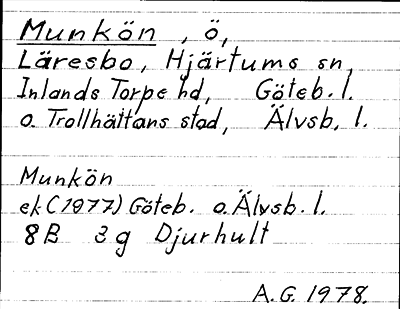 Munkön, ö,
Läresbo, Hjärtums sn,
Inlands Torpe hd, Göteb. l.
o. Trollhättans stad, Älvsb. l.
Munkön
ek (1977) Göteb. o. Älvsb. l.
8B 3g Djurhult
A.G. 1978.